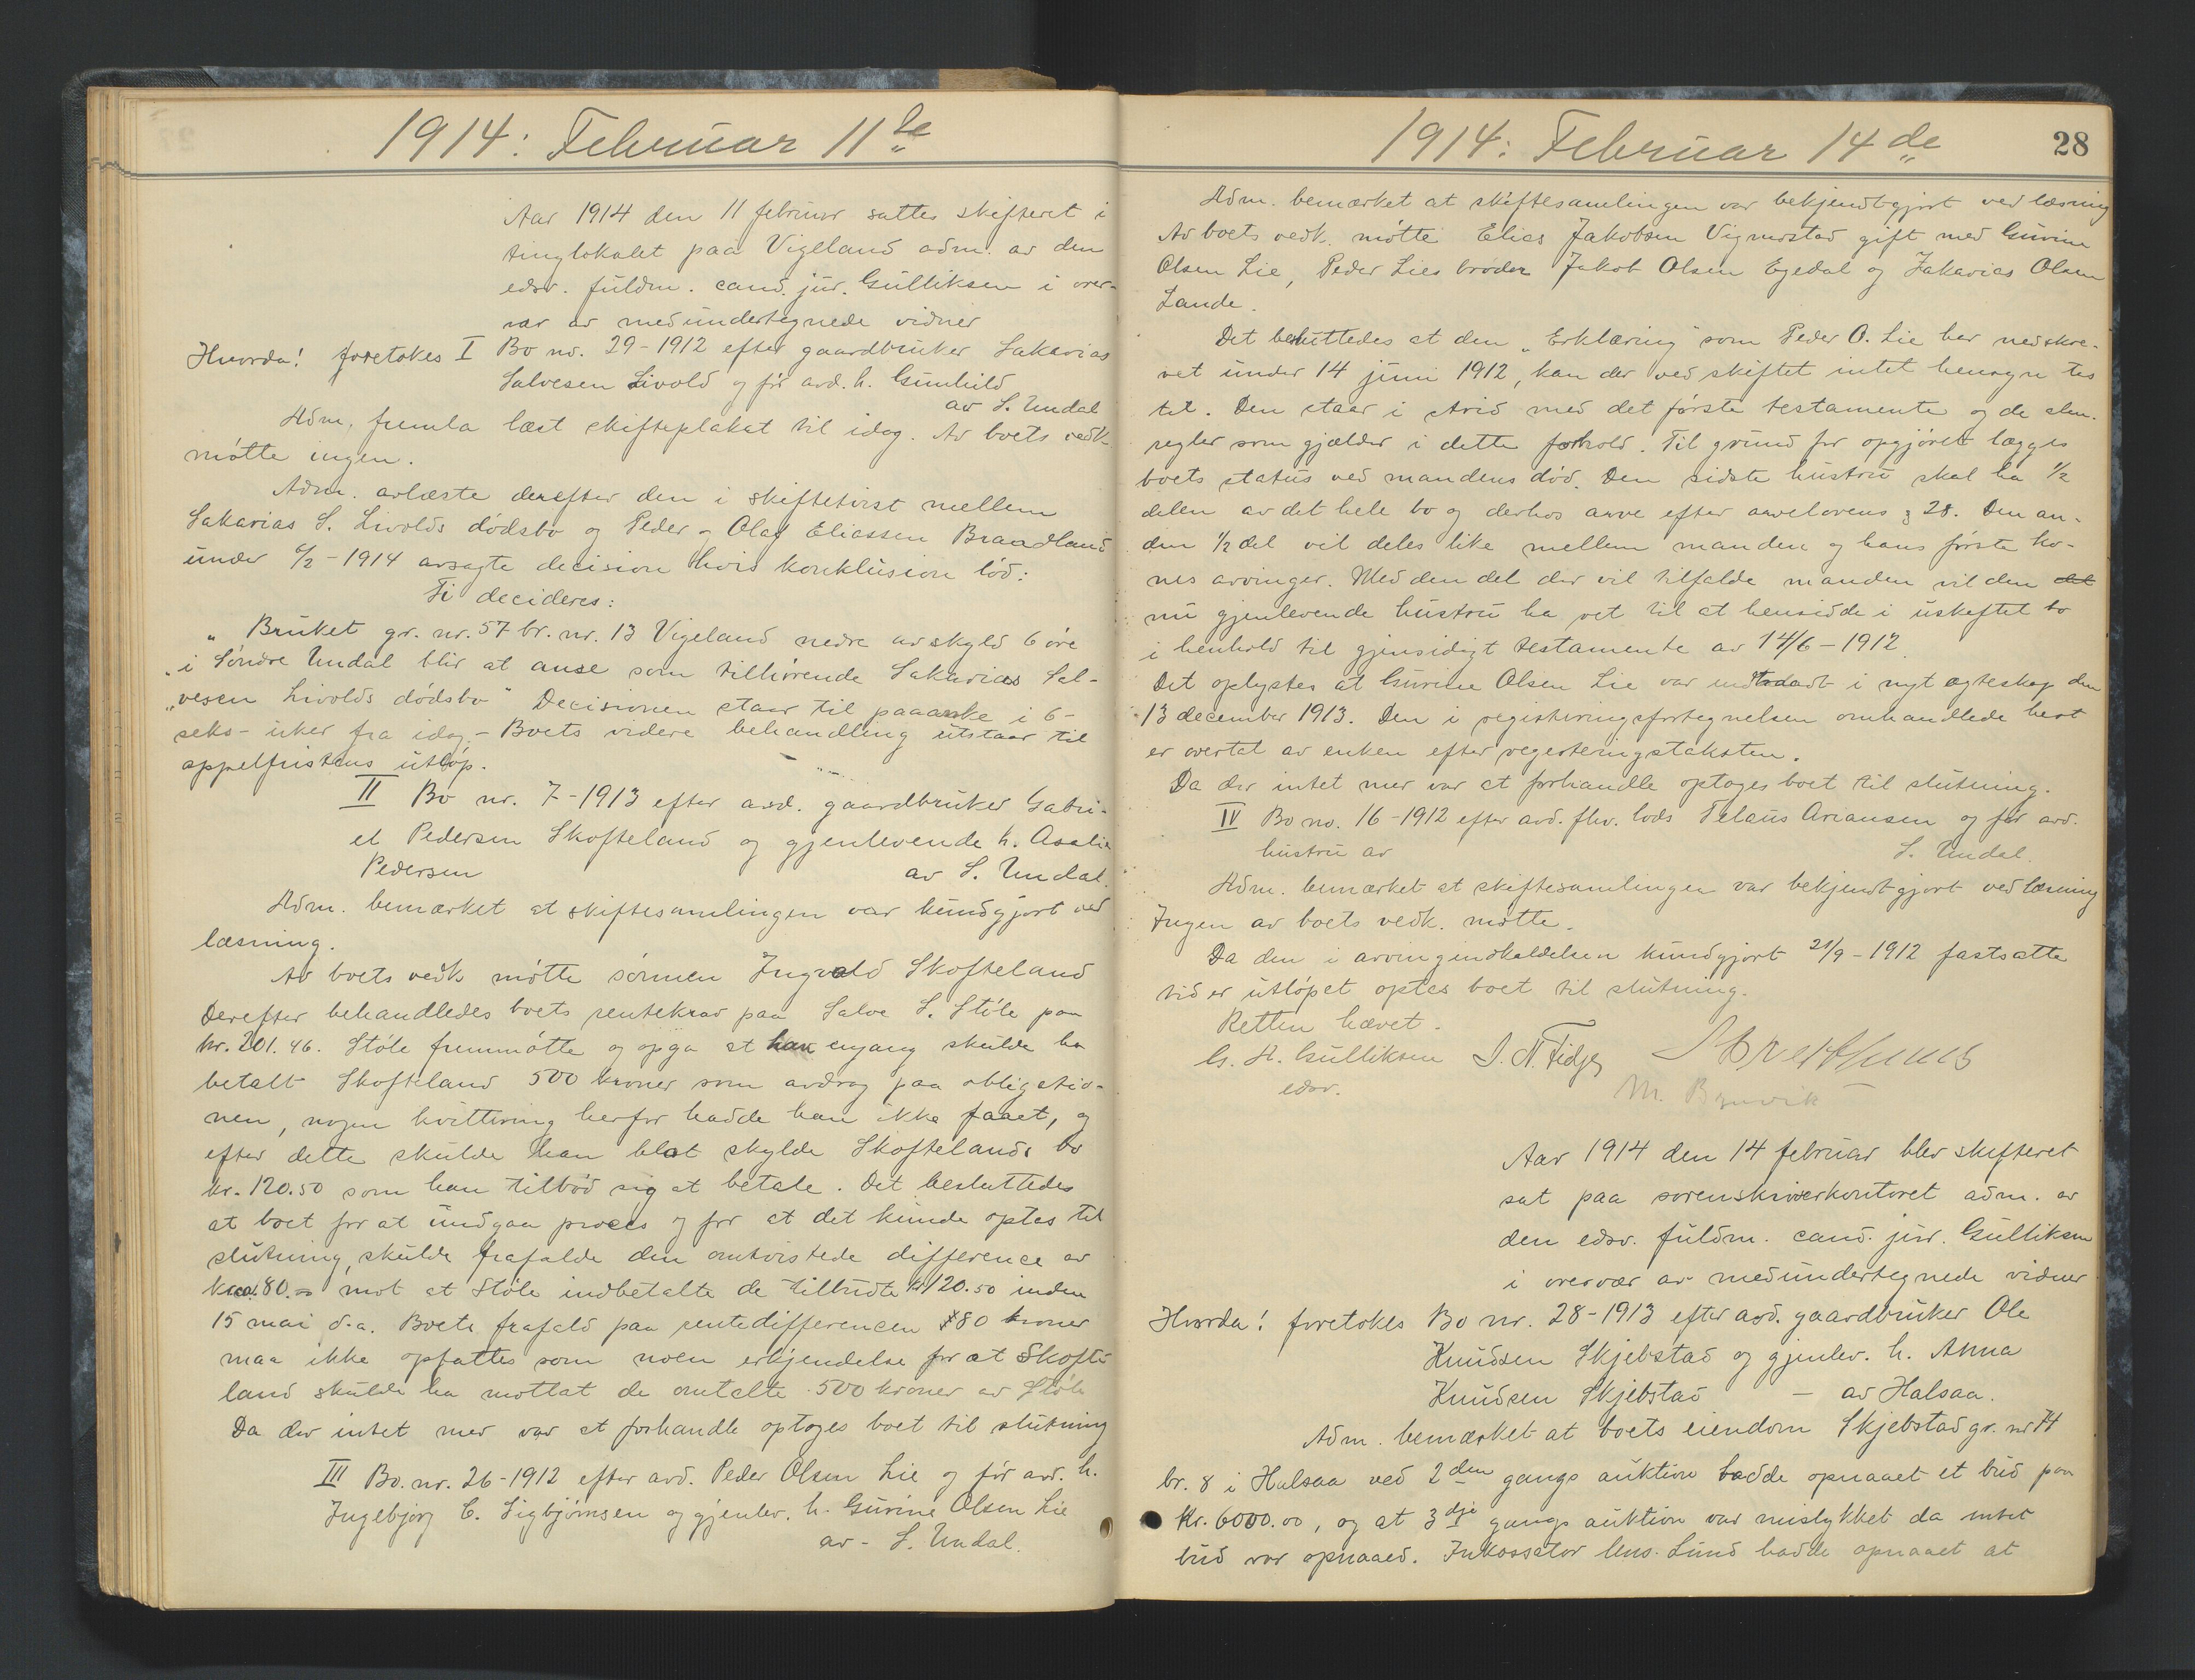 1914: Februar 11te
Aar 1914 den 11 februar sattes skifteret i
tinglokalet paa Vigeland adm. av den
edsv. fuldm. cand. jur. Gulliksen i over-
vær av medundertegnede vidner
Hvorda! foretokes I Bo nr. 29-1912 efter gaardbruker Sakarias
Salvesen Livold og før avd. h. Gunhild
av S. Undal
Adm. fremla læst skifteplakat til idag. Av boets vedk.
møtte ingen.
Adm. avlæste derefter den i skiftetvist mellem
Sakarias S. Livolds dødsbo og Peder og Olaf Eliassen Braadland
under 6/2-1914 avsagte decision hvis konklusion lød:
Ti decideres:
"Bruket gr. nr. 57 br. nr. 13 Vigeland nedre av skyld 6 øre
"i Søndre Undal blir at anse som tilhørende Sakarias Sal-
"vesen Livolds dødsbo" Decisionen staar til paaanke i 6-
seks- uker fra idag.- Boets videre behandling utstaar til
appelfristens utløp.
II Bo nr. 7-1913 efter avd. gaardbruker Gabri-
el Pedersen Skofteland og gjenlevende h. Asalie
Pedersen av S. Undal.
Adm. bemærket at skiftesamlingen var kundgjort ved
læsning.
Av boets vedk møtte sønnen Ingvald Skofteland
Derefter behandledes boets rentekrav paa Salve S. Støle paa
kr. 201.46. Støle fremmøtte og opga at han engang skulde ha
betalt Skofteland 500 kroner som avdrag paa obligatio-
nen, nogen kvittering herfor hadde han ikke faaet, og
efter dette skulde han blot skylde Skoftelands bo
kr. 120.50 som han tilbød sig at betale. Det besluttedes
at boet for at undgaa proces og for at det kunde optas til
slutning, skulde frafalde den omtvistede difference av
kr. 80.- mot at Støle indbetalte de tilbudte kr 120.50 inden
15 mai d.a. Boets frafald paa rentedifferencen 80 kroner
maa ikke opfattes som noen erkjendelse for at Skofte
land skulde ha mottat de omtalte 500 kroner av Støle
Da der intet mer var at forhandle optages boet til slutning
III Bo. nr. 26-1912 efter avd. Peder Olsen Lie og før avd. h.
Ingebjørg C. Sigbjørnsen og gjenlev. h. Gurine Olsen Lie
av - S. Undal.
1914: Februar 14de
28
Adm. bemærket at skiftesamlingen var bekjendtgjort ved læsning
Av boets vedk. møtte Elias Jakobsen Vigmostad gift med Gurine
Olsen Lie, Peder Lies brødre Jakob Olsen Egedal og Zakarias Olsen
Lande.
Det besluttedes at den "Erklæring" som Peder O. Lie har nedskre-
vet under 14 juni 1912, kan der ved skiftet intet hensyn tas
til. Den staar i strid med det første testamente og de alm.
regler som gjælder i dette forhold. Til grund for opgjøret lægges
boets status ved mandens død. Den sidste hustru skal ha 1/2
delen av det hele bo og derhos arve efter arvelovens § 28. Den an-
den 1/2 del vil deles like mellem manden og hans første ko-
nes arvinger. Med den del der vil tilfalde manden vil den
nu gjenlevende hustru ha ret til at hensidde i uskiftet bo
i henhold til gjensidigt testamente av 14/6-1912.
Det oplystes at Gurine Olsen Lie var indtraadt i nyt ægteskap den
13 december 1913. Den i registreringsfortegnelsen omhandlede hest
er overtat av enken efter registeringstaksten.
Da der intet mer var at forhandle optages boet til slutning.
IV Bo no. 16-1912 efter avd. fhv. lods Telaus Ariansen og før avd.
hustru av S. Undal.
Adm. bemærket at skiftesamlingen var bekjendtgjort ved læsning
Ingen av boets vedk. møtte.
Da den i arvingindkaldelsen kundgjort 21/9-1912 fastsatte
tid er utløpet optas boet til slutning.
Retten hævet.
G. A. Gulliksen S. N. Fidje
edsv. M.
Aar 1914 den 14 februar blev skifteret
sat paa sorenskriverkontoret adm. av
den edsv. fuldm. cand. jur. Gulliksen
i overvær av medundertegnede vidner
Hvorda! foretokes Bo nr. 28-1913 efter avd. gaardbruker Ole
Knudsen Skjebstad og gjenlev. h. Anna
Knudsen Skjebstad - av Halsaa.
Adm. bemærket at boets eiendom Skjebstad gr. nr 74
br. 8 i Halsaa ved 2den gangs auktion hadde opnaaet et bud paa
kr. 6000.00, og at 3dje gangs auktion var mislykket da intet
bud var opnaaed. Inkassator Lund hadde opnaaet at